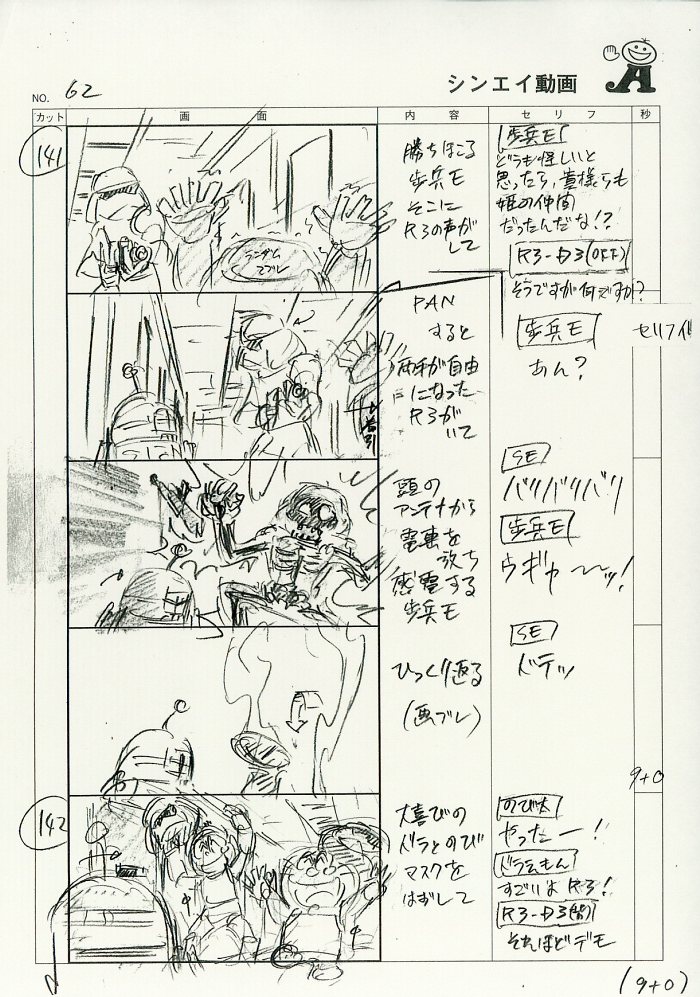 NO. 62
シンエイ動画
カット 画面 内容 セリフ 秒
141
ランダム
マブレ
勝ちほこる
歩兵E
そこに
R3の声が
して
歩兵E
どうも怪しいと
思ったら、貴様らも
姫の仲間
だったんだな!?
R3-D3(OFF)
そうですが何ですか?
PAN
すると
両手が自由
になった
R3が
いて
歩兵E
あん?
頭の
アンテナから
電撃を
放ち
感電する
歩兵E
SE
バリバリバリ
歩兵E
ウギャーッ!
ひっくり返る
(画ブレ)
SE
ドテッ
9+0
142
大喜びの
ドラとのび
マスクを
はずして
のび太
やったー!
ドラえもん
すごいよR3!
R3-D3
それほどデモ
(9+0)